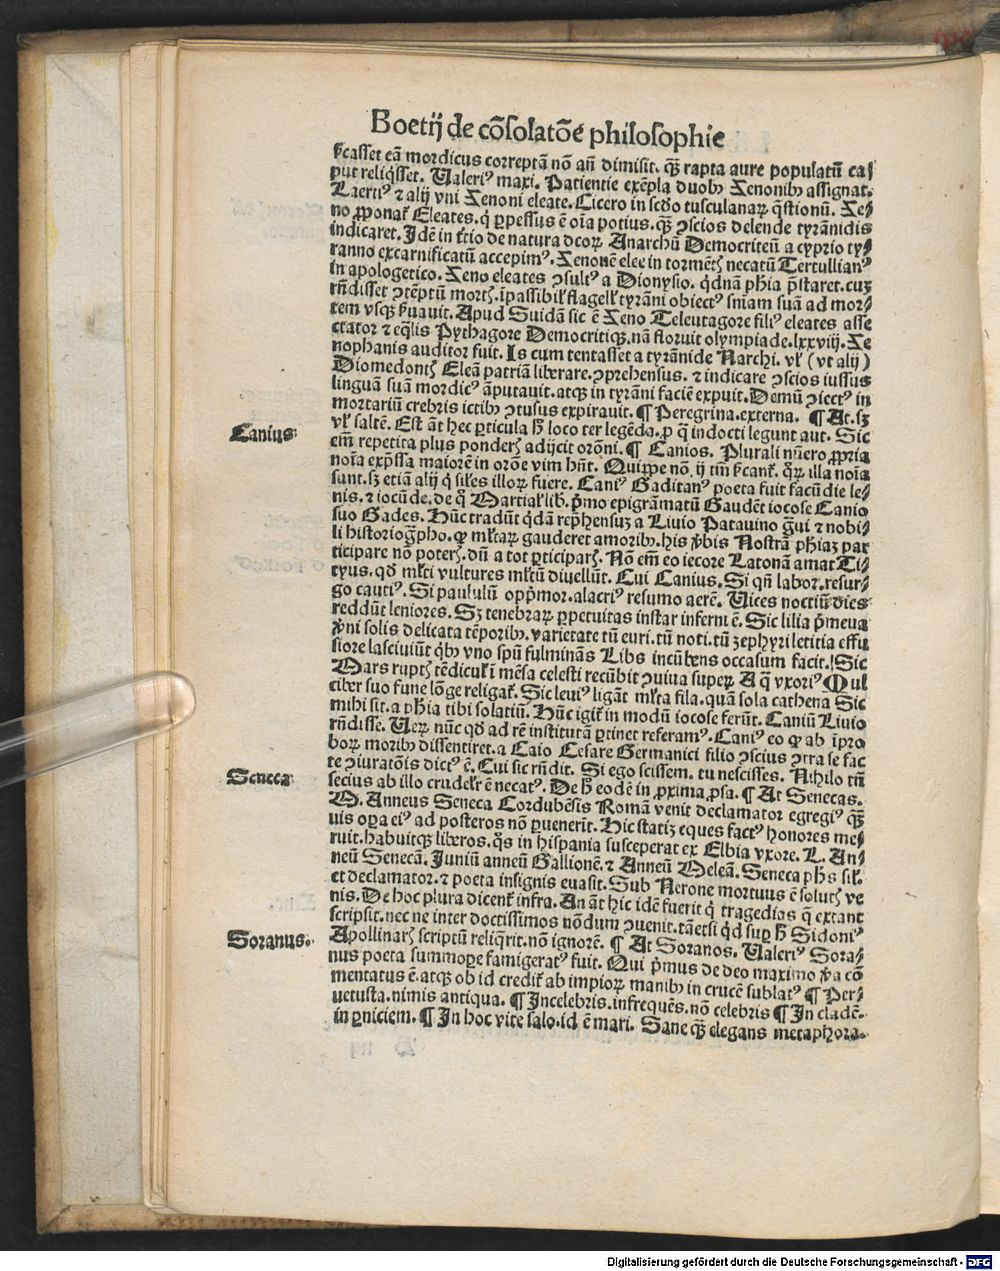 Boetij de cōsolatōe philosophie
ſcasset eā mordicus correptā nō añ dimisit. qͣꝫ rapta aure populatū ca⸗
put reliqͥsset. Ualeriꝰ maxi. Patientie exēpla duobꝫ Zenonibꝫ assignat.
Laertiꝰ ⁊ alij vni Zenoni eleate. Cicero in scd̄o tusculanaꝝ q̄stionū. Ze⸗
no ꝓponat᷑ Eleates. qͥ ꝑpessus ē oīa potius. qͣꝫ ꝯscios delende tyrānidis
indicaret. Idē in t̄tio de natura deoꝝ Anarchū Democriteū a cyprio ty⸗
ranno excarnificatū accepimꝰ. Zenonē elee in tormētꝭ necatū Tertullianꝰ
in apologetico. Zeno eleates ꝯsultꝰ a Dionysio. qͥdnā ph̄ia p̄staret. cuꝫ
rn̄disset ꝯtēptū mortꝭ. īpassibil᷑ flagell᷑ tyrāni obiectꝰ sn̄iam suā ad mor⸗
tem vsqꝫ ẜuauit. Apud Suidā sic ē Zeno Teleutagore filiꝰ eleates asse
ctator ⁊ eq̄lis Pythagore Democritiqꝫ. nā floruit olympiade. lxxviij. Xe
nophanis auditor fuit. Is cum tentasset a tyrānide Narchi. vl᷑ (vt alij)
Diomedontꝭ Eleā patriā liberare. ꝯprehensus. ⁊ indicare ꝯscios iussus
linguā suā mordicꝰ āputauit. atqꝫ in tyrāni faciē expuit. Demū ꝯiectꝰ in
mortariū crebris ictibꝰ ꝯtusus expirauit. ¶ Peregrina. externa. ¶ At. sꝫ
vl᷑ saltē. Est āt hec ꝑticula h̄ loco ter legēda. ꝓ q̄ indocti legunt aut. Sic
Canius.
em̄ repetita plus ponderꝭ adijcit orōni. ¶ Canios. Plurali nūero ꝓpria
noīa exp̄ssa maiorē in orōe vim hn̄t. Quippe nō. ij tm̄ ẜcant᷑. qͦꝝ illa noīa
sunt. sꝫ etiā alij qͥ sil᷑es illoꝝ fuere. Caniꝰ Gaditanꝰ poeta fuit facūdie le⸗
nis. ⁊ iocūde. de qͦ Martial᷑ lib. pͥmo epigrāmatū Gaudēt iocose Canio
suo Gades. Hūc tradūt qͥdā rep̄hensuꝫ a Liuio Patauino gͣui ⁊ nobi⸗
li historiogͣpho. ꝙ ml᷑taꝝ gauderet amoribꝫ. his v̄bis Nostrā ph̄iaꝫ par
ticipare nō poterꝭ. dū a tot ꝑticiparꝭ. Nō em̄ eo iecore Latonā amat Ti⸗
tyus. qd̄ ml᷑ti vultures ml᷑tū diuellūt. Cui Canius. Si qn̄ labor. resur⸗
go cautiꝰ. Si paululū opp̄mor. alacriꝰ resumo aerē. Uices noctiū dies
reddūt leniores. Sꝫ tenebraꝝ ꝑpetuitas instar inferni ē. Sic lilia pͥmeua
v̄ni solis delicata tēporibꝫ. varietate tū euri. tū noti. tū zephyri letitia effu
siore lasciuiūt qͥbꝫ vno spū fulminās Libs incūbens occasum facit. Sic
Mars ruptꝭ tēdicul᷑ ī mēsa celesti recūbit ꝯuiua supeꝝ A qͦ vxoriꝰ Mul
ciber suo fune lōge religat᷑. Sic leuiꝰ ligāt ml᷑ta fila. quā sola cathena Sic
mihi sit. a ph̄ia tibi solatiū. Hūc igit᷑ in modū iocose ferūt. Caniū Liuio
rn̄disse. Ueꝝ nūc qd̄ ad rē institutā ꝑtinet referamꝰ. Caniꝰ eo ꝙ ab īpro
boꝝ moribꝫ dissentiret. a Caio Cesare Germanici filio ꝯscius ꝯtra se fac
te ꝯiuratōis dictꝰ ē. Cui sic rn̄dit. Si ego scissem. tu nescisses. Nihilo tn̄
Seneca
secius ab illo crudel᷑r ē necatꝰ. De h̄ eodē in ꝓxima ꝓsa. ¶ At Senecas.
M. Anneus Seneca Cordubēsis Romā venit declamator egregiꝰ qͣꝫ
uis oꝑa eiꝰ ad posteros nō ꝑuenerīt. Hic statiꝫ eques factꝰ honores me⸗
ruit. habuitqꝫ liberos. qͦs in hispania susceperat ex Elbia vxore. L. An⸗
neū Senecā. Juniū anneū Gallionē. ⁊ Anneū Meleā. Seneca ph̄s sil᷑.
et declamator. ⁊ poeta insignis euasit. Sub Nerone mortuus ē solutꝭ ve
nis. De hoc plura dicent᷑ infra. An āt hic idē fuerit qͥ tragedias q̄ extant
scripsit. nec ne inter doctissimos nōdum ꝯuenit. tāetsi qͥd suꝑ h̄ Sidoniꝰ
Soranus.
Apollinarꝭ scriptū reliqͥrit. nō ignorē. ¶ At Soranos. Ualeriꝰ Sora⸗
nus poeta summoꝑe famigeratꝰ fuit. Qui pͥmus de deo maximo v̄a cō
mentatus ē. atqꝫ ob id credit᷑ ab impioꝝ manibꝫ in crucē sublatꝰ ¶ Per⸗
uetusta. nimis antiqua. ¶ Incelebris. infrequēs. nō celebris ¶ In cladē.
in ꝑniciem. ¶ In hoc vite salo. id ē mari. Sane qͣꝫ elegans metaphora.
Digitalisierung gefördert durch die Deutsche Forschungsgemeinschaft - DFG